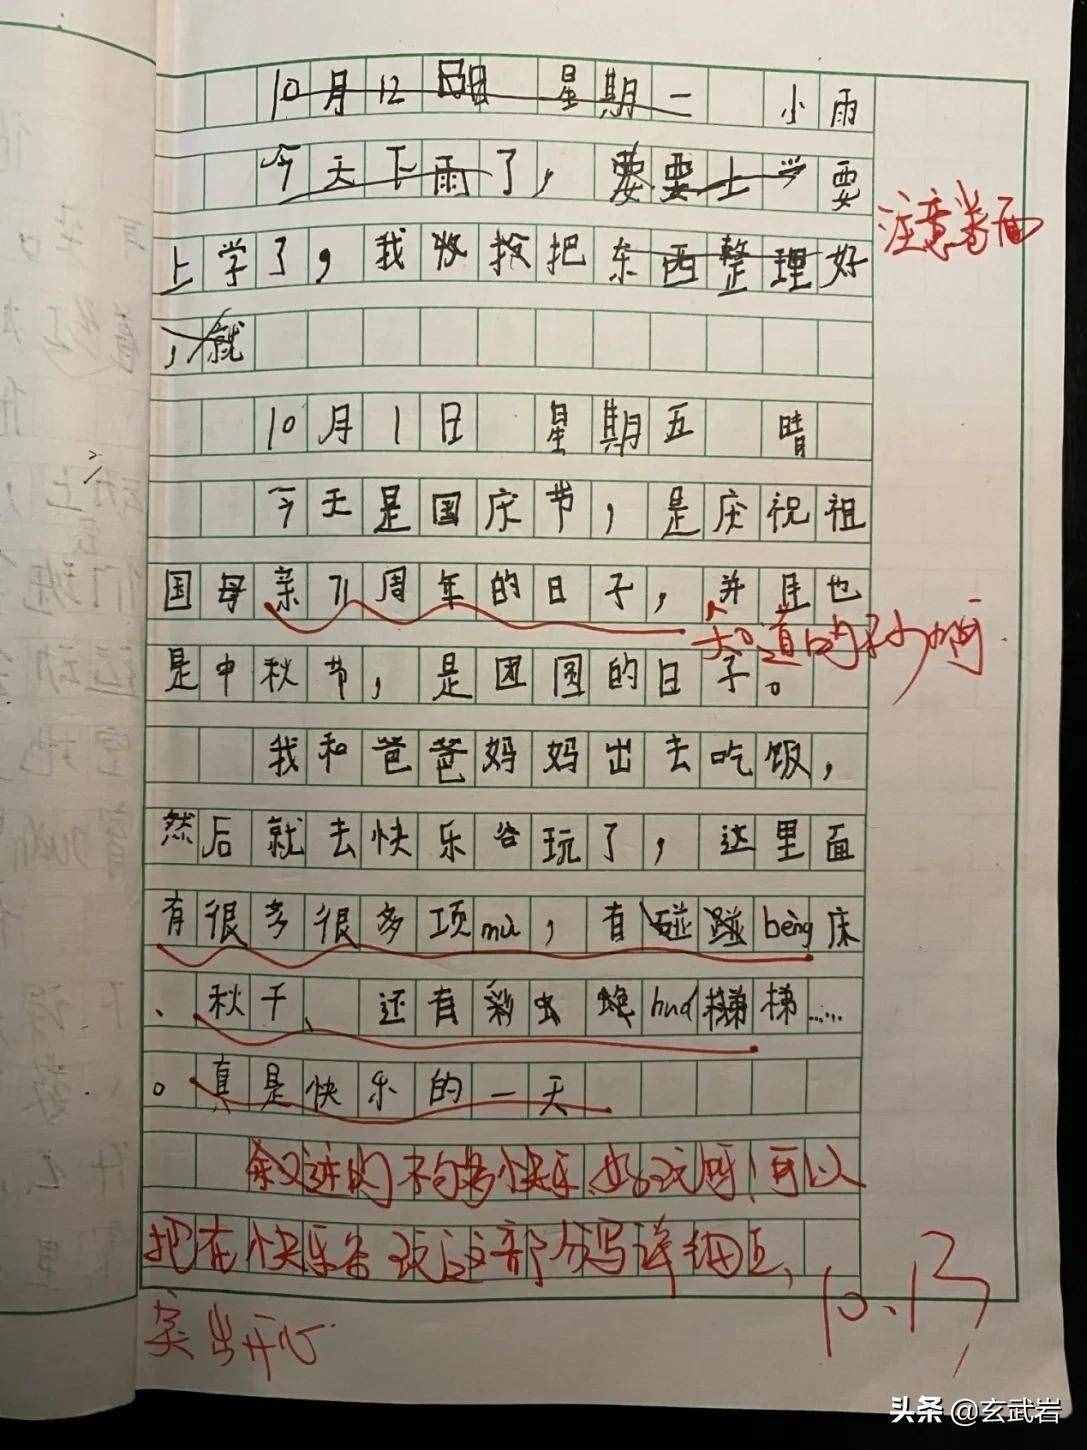 10月12日 星期二 小雨
今天下雨了，要要上学要
上学了，我收拾把东西整理好
，就
注意卷面
10月1日 星期五 晴
今天是国庆节，是庆祝祖
国母亲71周年的日子，并且也
知道的不少啊
是中秋节，是团圆的日子。
我和爸爸妈妈出去吃饭，
然后就去快乐谷玩了，这里面
有很多很多项mù，有碰蹦bèng床
、秋千、还有彩虫虫毛huá梯梯……
。真是快乐的一天
叙述的不够多快乐好玩呀！可以
把在快乐谷玩这部分写详细点、
突出开心
10.13
头条 @玄武岩